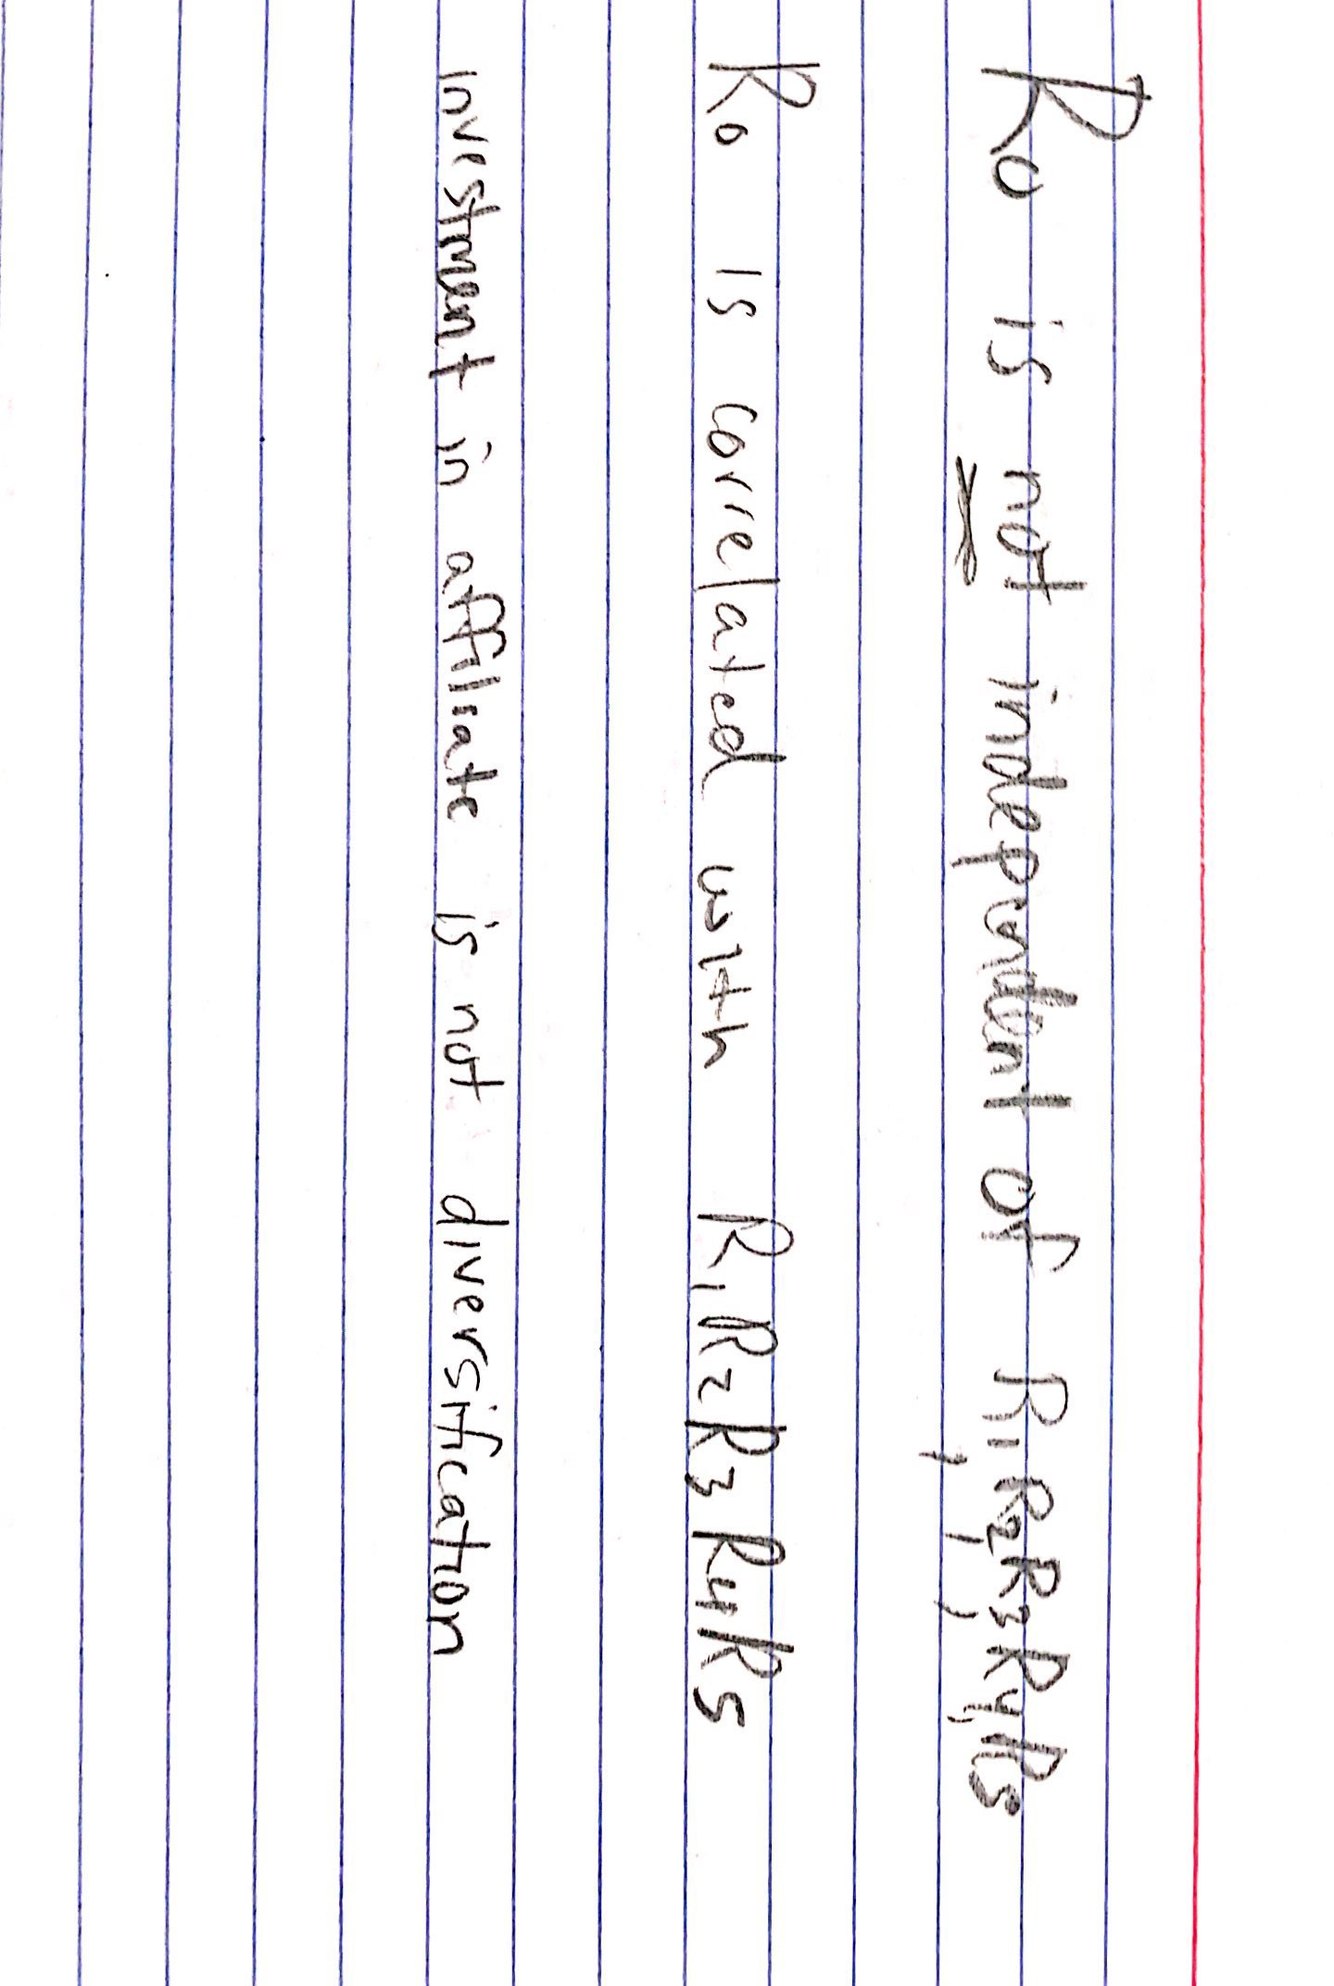 Ro is not independent of R1, R2, R3, R4, R5
Ro is correlated with R1 R2 R3 R4 R5
investment in affiliate is not diversification